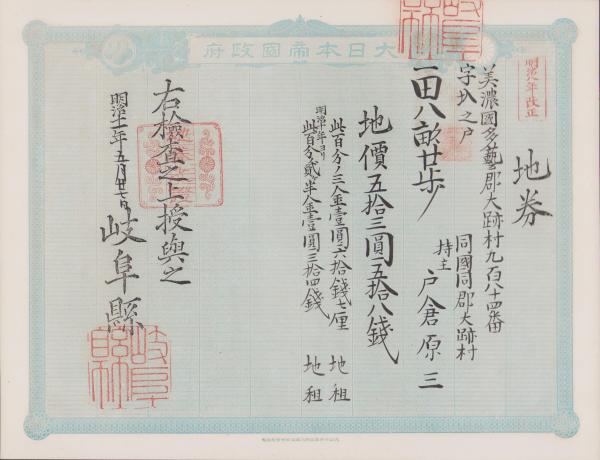 大日本帝國政府
明治八年改正
地券
美濃國多藝郡大跡村九百八十四番
字圦之戸
同國同郡大跡村
持主 戸倉原三
一田八畝廿歩
地價五拾三圓五拾八錢
此百分ノ三金壹圓六拾錢七厘 地租
明治十年ヨリ
此百分ノ貳半金壹圓三拾四錢 地租
右檢査之上授與之
明治十一年五月廿七日
岐阜縣